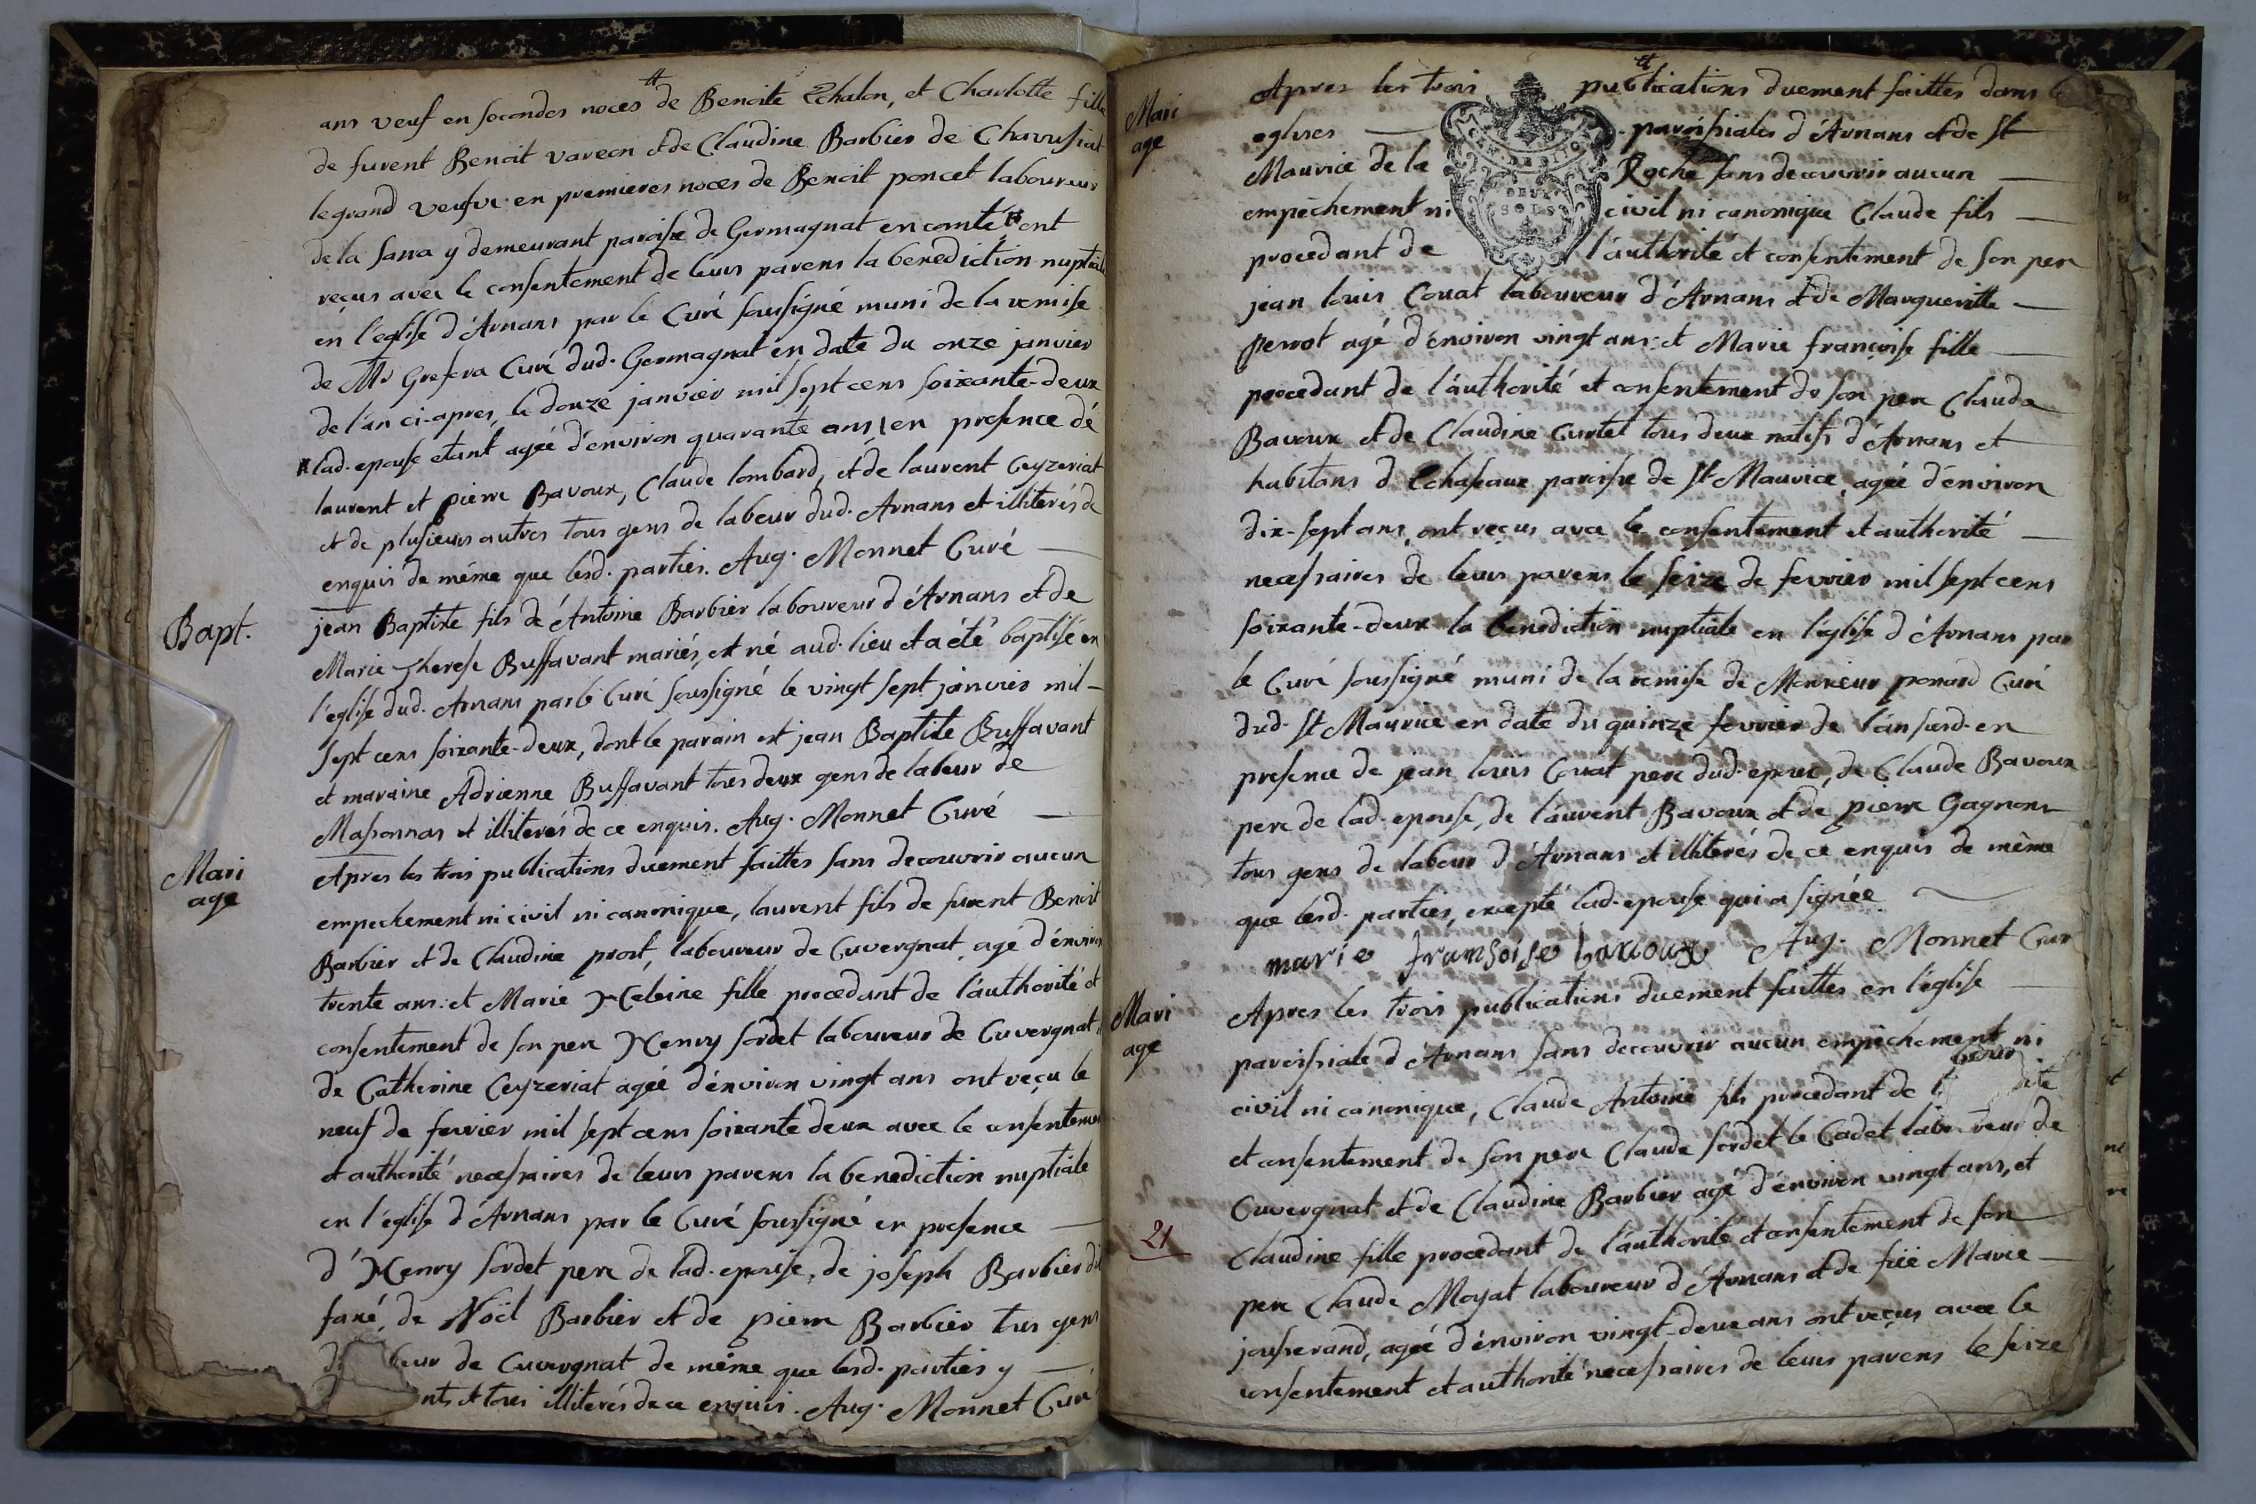 ans veuf en secondes noces de Benoite Echalon, et Charlotte fille
de furent Benoit vareon et de Claudine Barbier de Charrisiat
le grand veufve en premieres noces de Benoit poncet laboureur
de la sarra y demeurant paroisse de Germagnat en comté ont
reçus avec le consentement de leurs parens la benediction nuptiale
en l'eglise d'Arnans par le Curé soussigné muni de la remise
de Mr Grefera Curé dud. Germagnat en date du onze janvier
de l'an ci-apres, le douze janvier mil sept cens soixante-deux
lad. epouse etant agée d'environ quarante ans, en presence de
laurent et pierre Bavoux, Claude lombard, et de laurent Ceyzeriat
et de plusieurs autres tous gens de labeur dud. Arnans et illiterés de
enquis de même que lesd. parties. Aug. Monnet Curé
Bapt.
jean Baptiste fils de Antoine Barbier laboureur d'Arnans et de
Marie Therese Buffavant mariés, est né aud. lieu et a été baptisé en
l'eglise dud. Arnans par le Curé soussigné le vingt sept janvier mil-
sept cens soixante-deux, dont le parain est jean Baptiste Buffavant
et maraine Adrienne Buffavant tous deux gens de labeur de
Massonnas et illiterés de ce enquis. Aug. Monnet Curé
Mari
age
Apres les trois publications duement faittes sans decouvrir aucun
empechement ni civil ni canonique, laurent fils de furent Benoit
Barbier et de Claudine prost, laboureur de Cuvergnat, agé d'environ
trente ans: et Marie Heleine fille procedant de l'authorité et
consentement de son pere Henry sordet laboureur de Cuvergnat,
de Catherine Ceyzeriat agée d'environ vingt ans ont reçu le
neuf de fevrier mil sept cens soixante deux avec le consentement
et authorité necessaires de leurs parens la benediction nuptiale
en l'eglise d'Arnans par le Curé soussigné en presence
d'Henry sordet pere de lad. epouse, de joseph Barbier dit
fané, de Noël Barbier et de pierre Barbier tus gens
beur de Cuvergnat de même que lesd. parties y
nts et tous illiterés de ce enquis. Aug. Monnet Curé
Mari
age
Apres les trois publications duement faittes dans
eglises paroissiales d'Arnans et de St
Maurice de la Roche sans decouvrir aucun
empechement ni civil ni canonique Claude fils
procedant de l'authorité et consentement de son pere
GEN. DE DIJON
DEUX
SOLS
jean louis Couat laboureur d'Arnans et de Margueritte
perrot agé d'environ vingt ans: et Marie françoise fille
procedant de l'authorité et consentement de son pere Claude
Bavoux et de Claudine Curtet tous deux natifs d'Arnans et
habitans d'Echaseaux paroisse de St Maurice, agée d'environ
dix-sept ans, ont reçus avec le consentement et authorité
necessaires de leurs parens le seize de fevrier mil sept cens
soixante-deux la benediction nuptiale en l'eglise d'Arnans par
le Curé soussigné muni de la remise de Monsieur ponard Curé
dud. St Maurice en date du quinze fevrier de l'an susd. en
presence de jean louis Couat pere dud. epoux, de Claude Bavoux
pere de lad. epouse, de laurent Bavoux et de pierre Gagneur
tous gens de labeur d'Arnans et illiterés de ce enquis de même
que lesd. parties, excepté lad. epouse qui a signée
marie fransoise bavoux Aug. Monnet Cur
Mari
age
Apres les trois publications duement faittes en l'eglise
paroissiale d'Arnans sans decouvrir aucun empêchement ni
civil ni canonique, Claude Antoine fils procedant de
et consentement de son pere Claude sordet le Cadet laboureur de
Cuvergnat et de Claudine Barbier agé d'environ vingt ans, et
21
Claudine fille procedant de l'authorité et consentement de son
pere Claude Moyat laboureur d'Arnans et de füe Marie
jousserand, agée d'environ vingt-deux ans ont reçus avec le
consentement et authorité necessaires de leurs parens le seize